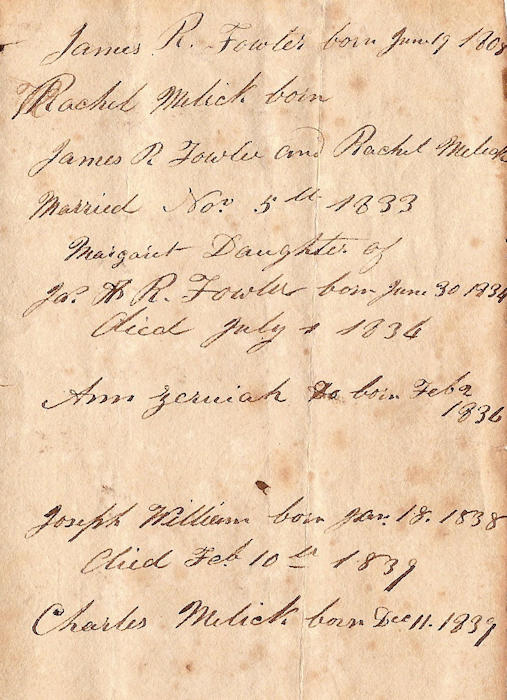 James R. Fowler born June 17 1808
Rachel Melick born
James R Fowler and Rachel Melick
Married Nov. 5th 1833
Margaret Daughter of
Jas. & R. Fowler born June 30 1834
died July 1834
Ann Zeruiah Do born Feb 2
1836
Joseph William born Jan. 18. 1838
died Feb 10th 1839
Charles Melick born Dec 11. 1839